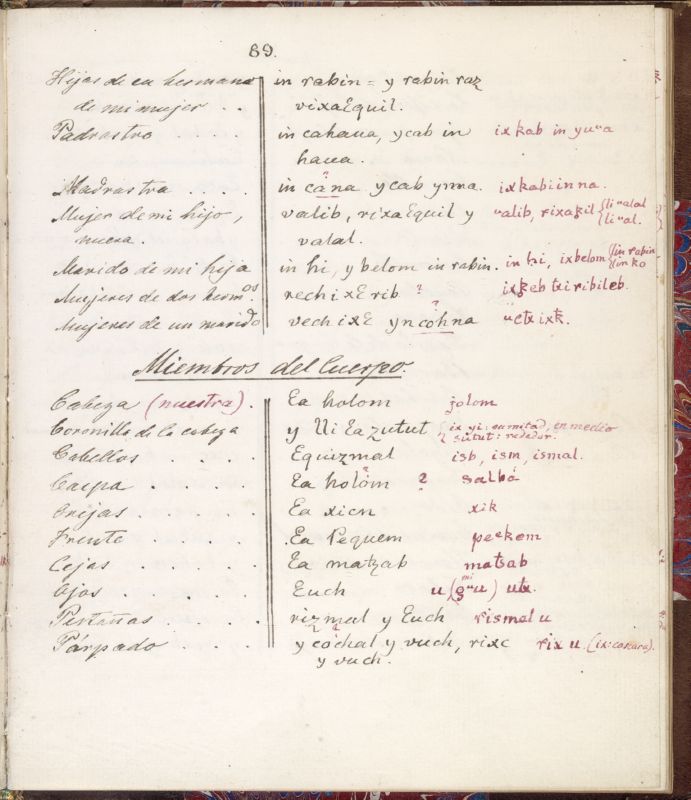 89.
Hijas de su hermana in rabin = y rabin raz
de mi mujer . . vixaEquil.
Padrastro . . . . . in cahaua, ycab in ixkab in yuua
haua.
Madrastra . . . . in cana ycab ynna. ixkabiinna.
Mujer de mi hijo, valib, rixaEquil y ualib, rixakil {li ualal
nuera. valal. {li ual.
Marido de mi hija in hi, y belom in rabin. in hi, ixbelom {in rabin
{in ko
Mujeres de dos hermos rech ixE rib ? ixkeb txiribileb.
Mujeres de un marido vech ixE yncohna ? uetx ixk.
Miembros del Cuerpo.
Cabeza (nuestra) . Ea holom jolom
Coronilla de la cabeza y Ui Ea zutut { ix yi: su mitad, en medio
sutut: rededor.
Cabellos . . . Equizmal isb, ism, ismal.
Caspa . . . Ea holom ? salba
Orejas . . . . Ea xicn xik
Frente . . . . Ea Pequem peekem
Cejas . . . . Ea matzab matsab
Ojos . . . . Euch u (guu) utx.
mi
Pestañas . . . . rizmal y Euch rismal u
Párpado . . . . y cochal y vuch, rixc rix u (ix: cascara).
y vuch.